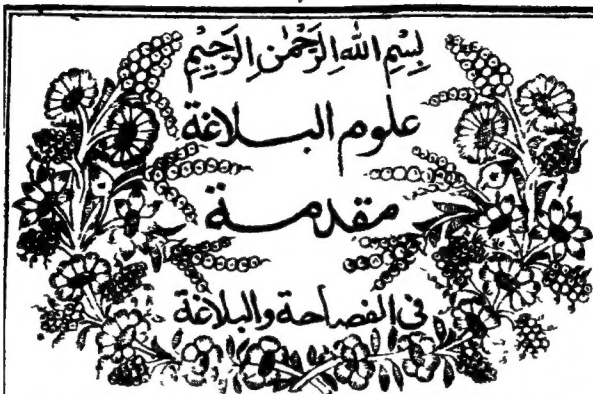 بِسْمِ اللهِ الرَّحْمٰنِ الرَّحِيْمِ
علوم البــلاغة
مقدمــة
فى الفصاحة والبلاغة